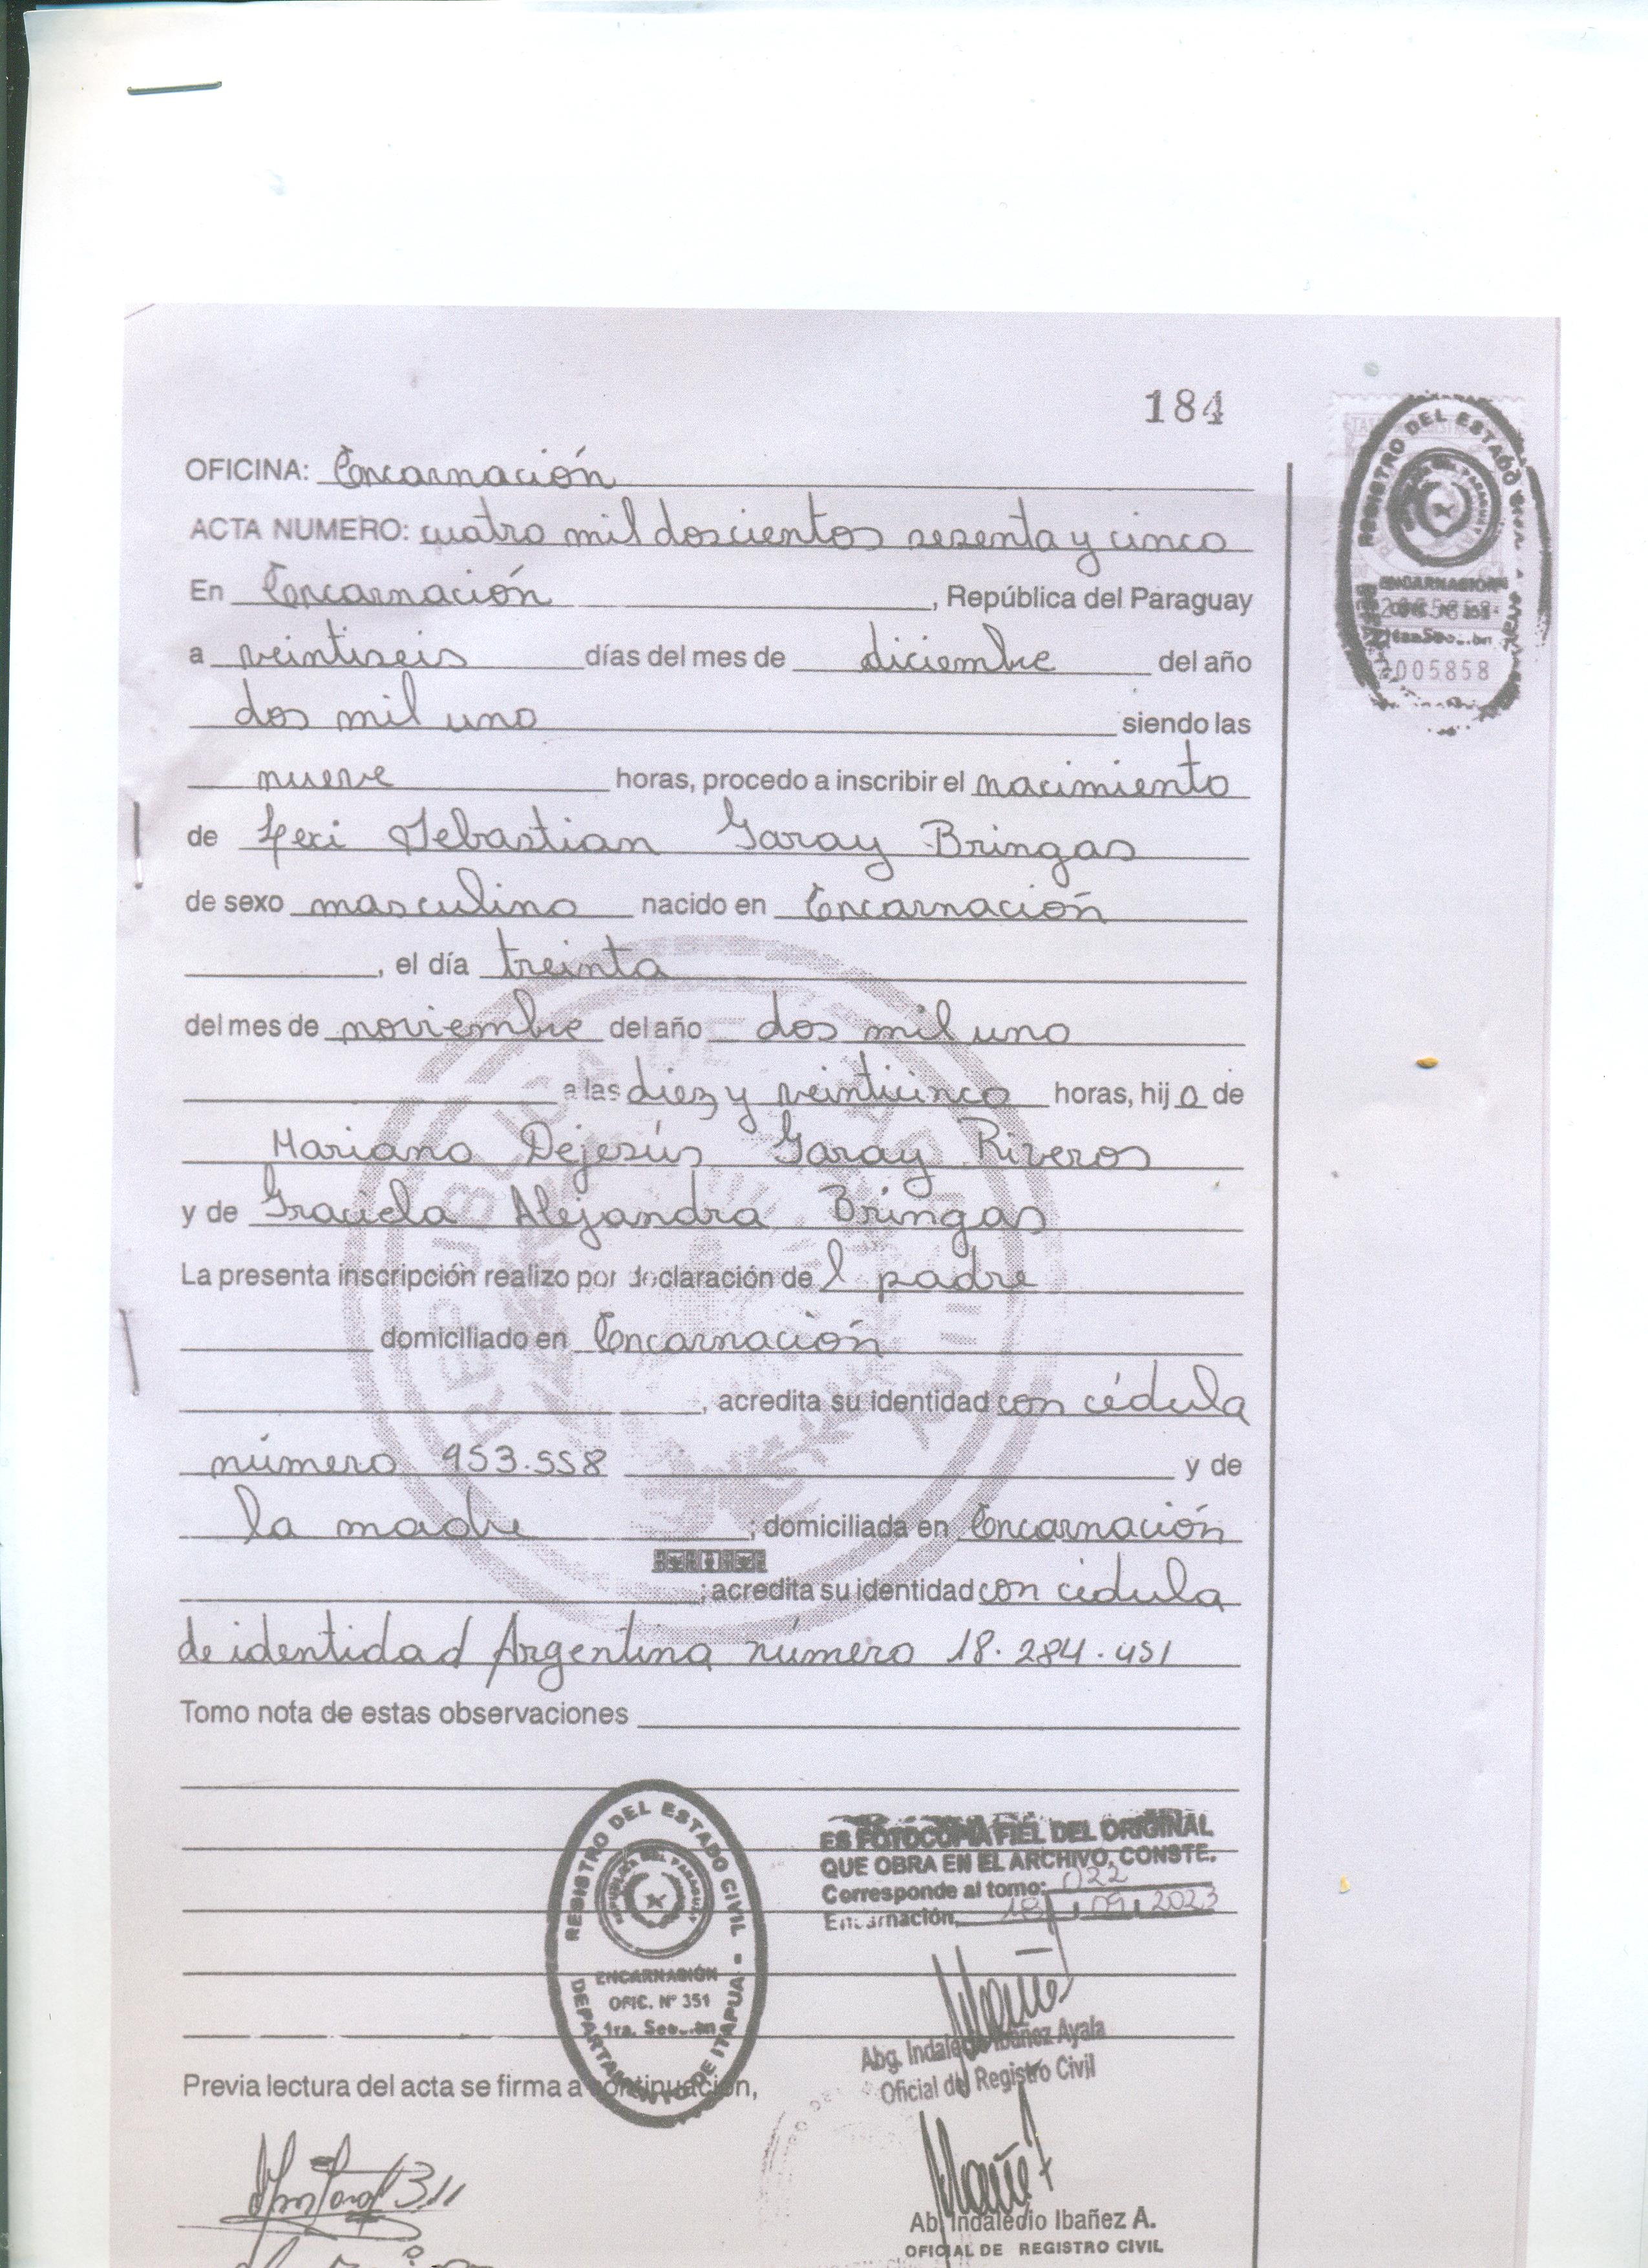 184
OFICINA: Encarnación
ACTA NUMERO: cuatro mil doscientos sesenta y cinco
En Encarnación, República del Paraguay
a veintiseis días del mes de diciembre del año
dos mil uno siendo las
nueve horas, procedo a inscribir el nacimiento
de Sebastian Garay Bringas
de sexo masculino nacido en Encarnación
, el día treinta
del mes de noviembre del año dos mil uno
a las diez y veinticinco horas, hijo de
Mariano Dejesús Garay Riveros
y de Graciela Alejandra Bringas
La presenta inscripción realizo por declaración del padre
domiciliado en Encarnación
, acredita su identidad con cédula
número 953.558 y de
la madre ; domiciliada en Encarnación
; acredita su identidad con cédula
de identidad Argentina número 18.284.451
Tomo nota de estas observaciones
ES FOTOCOPIA FIEL DEL ORIGINAL
QUE OBRA EN EL ARCHIVO, CONSTE.
Corresponde al tomo: 022
Encarnación, 18 / 09 / 2023
REGISTRO DEL ESTADO CIVIL
REPUBLICA DEL PARAGUAY
ENCARNACIÓN
OFIC. Nº 351
1ra. Sección
DEPARTAMENTO DE ITAPUA
Abg. Indalecio Ibañez Ayala
Oficial de Registro Civil
Previa lectura del acta se firma a continuación,
Ab. Indalecio Ibañez A.
OFICIAL DE REGISTRO CIVIL
REGISTRO DEL ESTADO
ENCARNACIÓN
005858